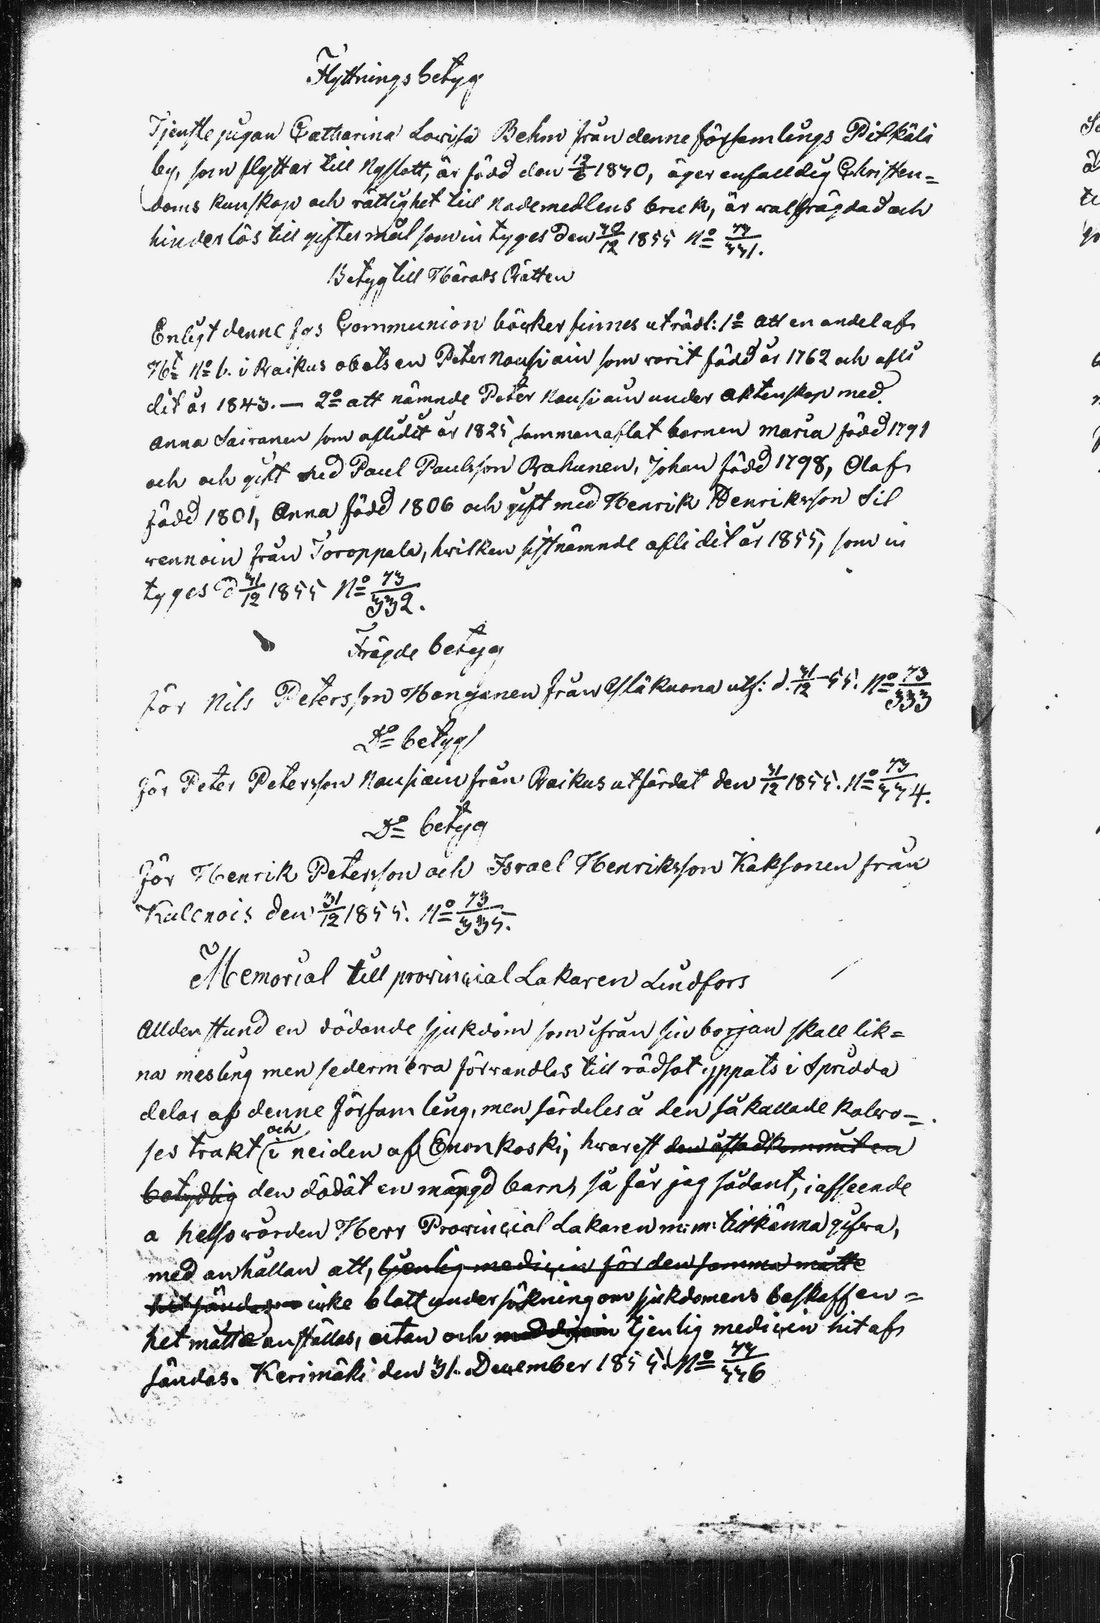 Flyttningsbetyg
Tjenstepigan Catharina Lovisa Behm från denne församlings Pitkälä
by, som flyttar till Nyslott, är född den 12/6 1840, äger enfalldig Christen=
doms kunskap och rättighet till nademedlens bruk, är walfrägdad och
hinderlös till giftermål som intyges den 30/12 1855 No 73/331.
Betyg till Härads Rätten
Enligt denne fös Communion böcker finnes uträdt: 1o att en andel af
Ht No 6. i Raikus abotsen Peter Nousiain som varit född år 1762 och afli
dit år 1843. — 2o att nämnde Peter Nousiain under äktenskap med
Anna Sairanen som aflidit år 1825 sammanaflat barnen Maria född 1791
och och gift med Paul Paulsson Rahunen, Johan född 1798, Olaf
född 1801, Anna född 1806 och gift med Henrik Henriksson Sil
vennoin från Toroppala, hvilken sistnämnde aflidit år 1855, som in
tyges d 31/12 1855 No 73/332.
Frägde betyg
för Nils Petersson Hongonen från utf: d. 31/12 -55. No 73/333
Do betyg
för Peter Petersson Nousiain från Raikus utfärdat den 31/12 1855. No 73/334.
Do betyg
för Henrik Petersson och Israel Henriksson Kaksonen från
Kulennois den 31/12 1855. No 73/335.
Memorial till provincial Läkaren Lindfors
Alldenstund en dödande sjukdom som ifrån sin borjan skall lik=
na mesling men sedermera förvandlas till rödsot yppats i spridda
delar af denne församling, men särdeles å den såkallade Kalvo=
ses trakt och i neiden af Enonkoski, hvarest den åstadkommit en
betydlig den dödåt en mängd barn, så får jag sådant, i afseende
a helsovården Herr Provincial Läkaren m: m: tillkänna gifva,
med anhållan att, tjenlig medicin för den samma måtte
hitsändas icke blott undersökning om sjukdomens beskaffen=
het måtte anställas, utan och medicin tjenlig medicin hit af
sändas. Kerimäki den 31. December 1855. No 73/336